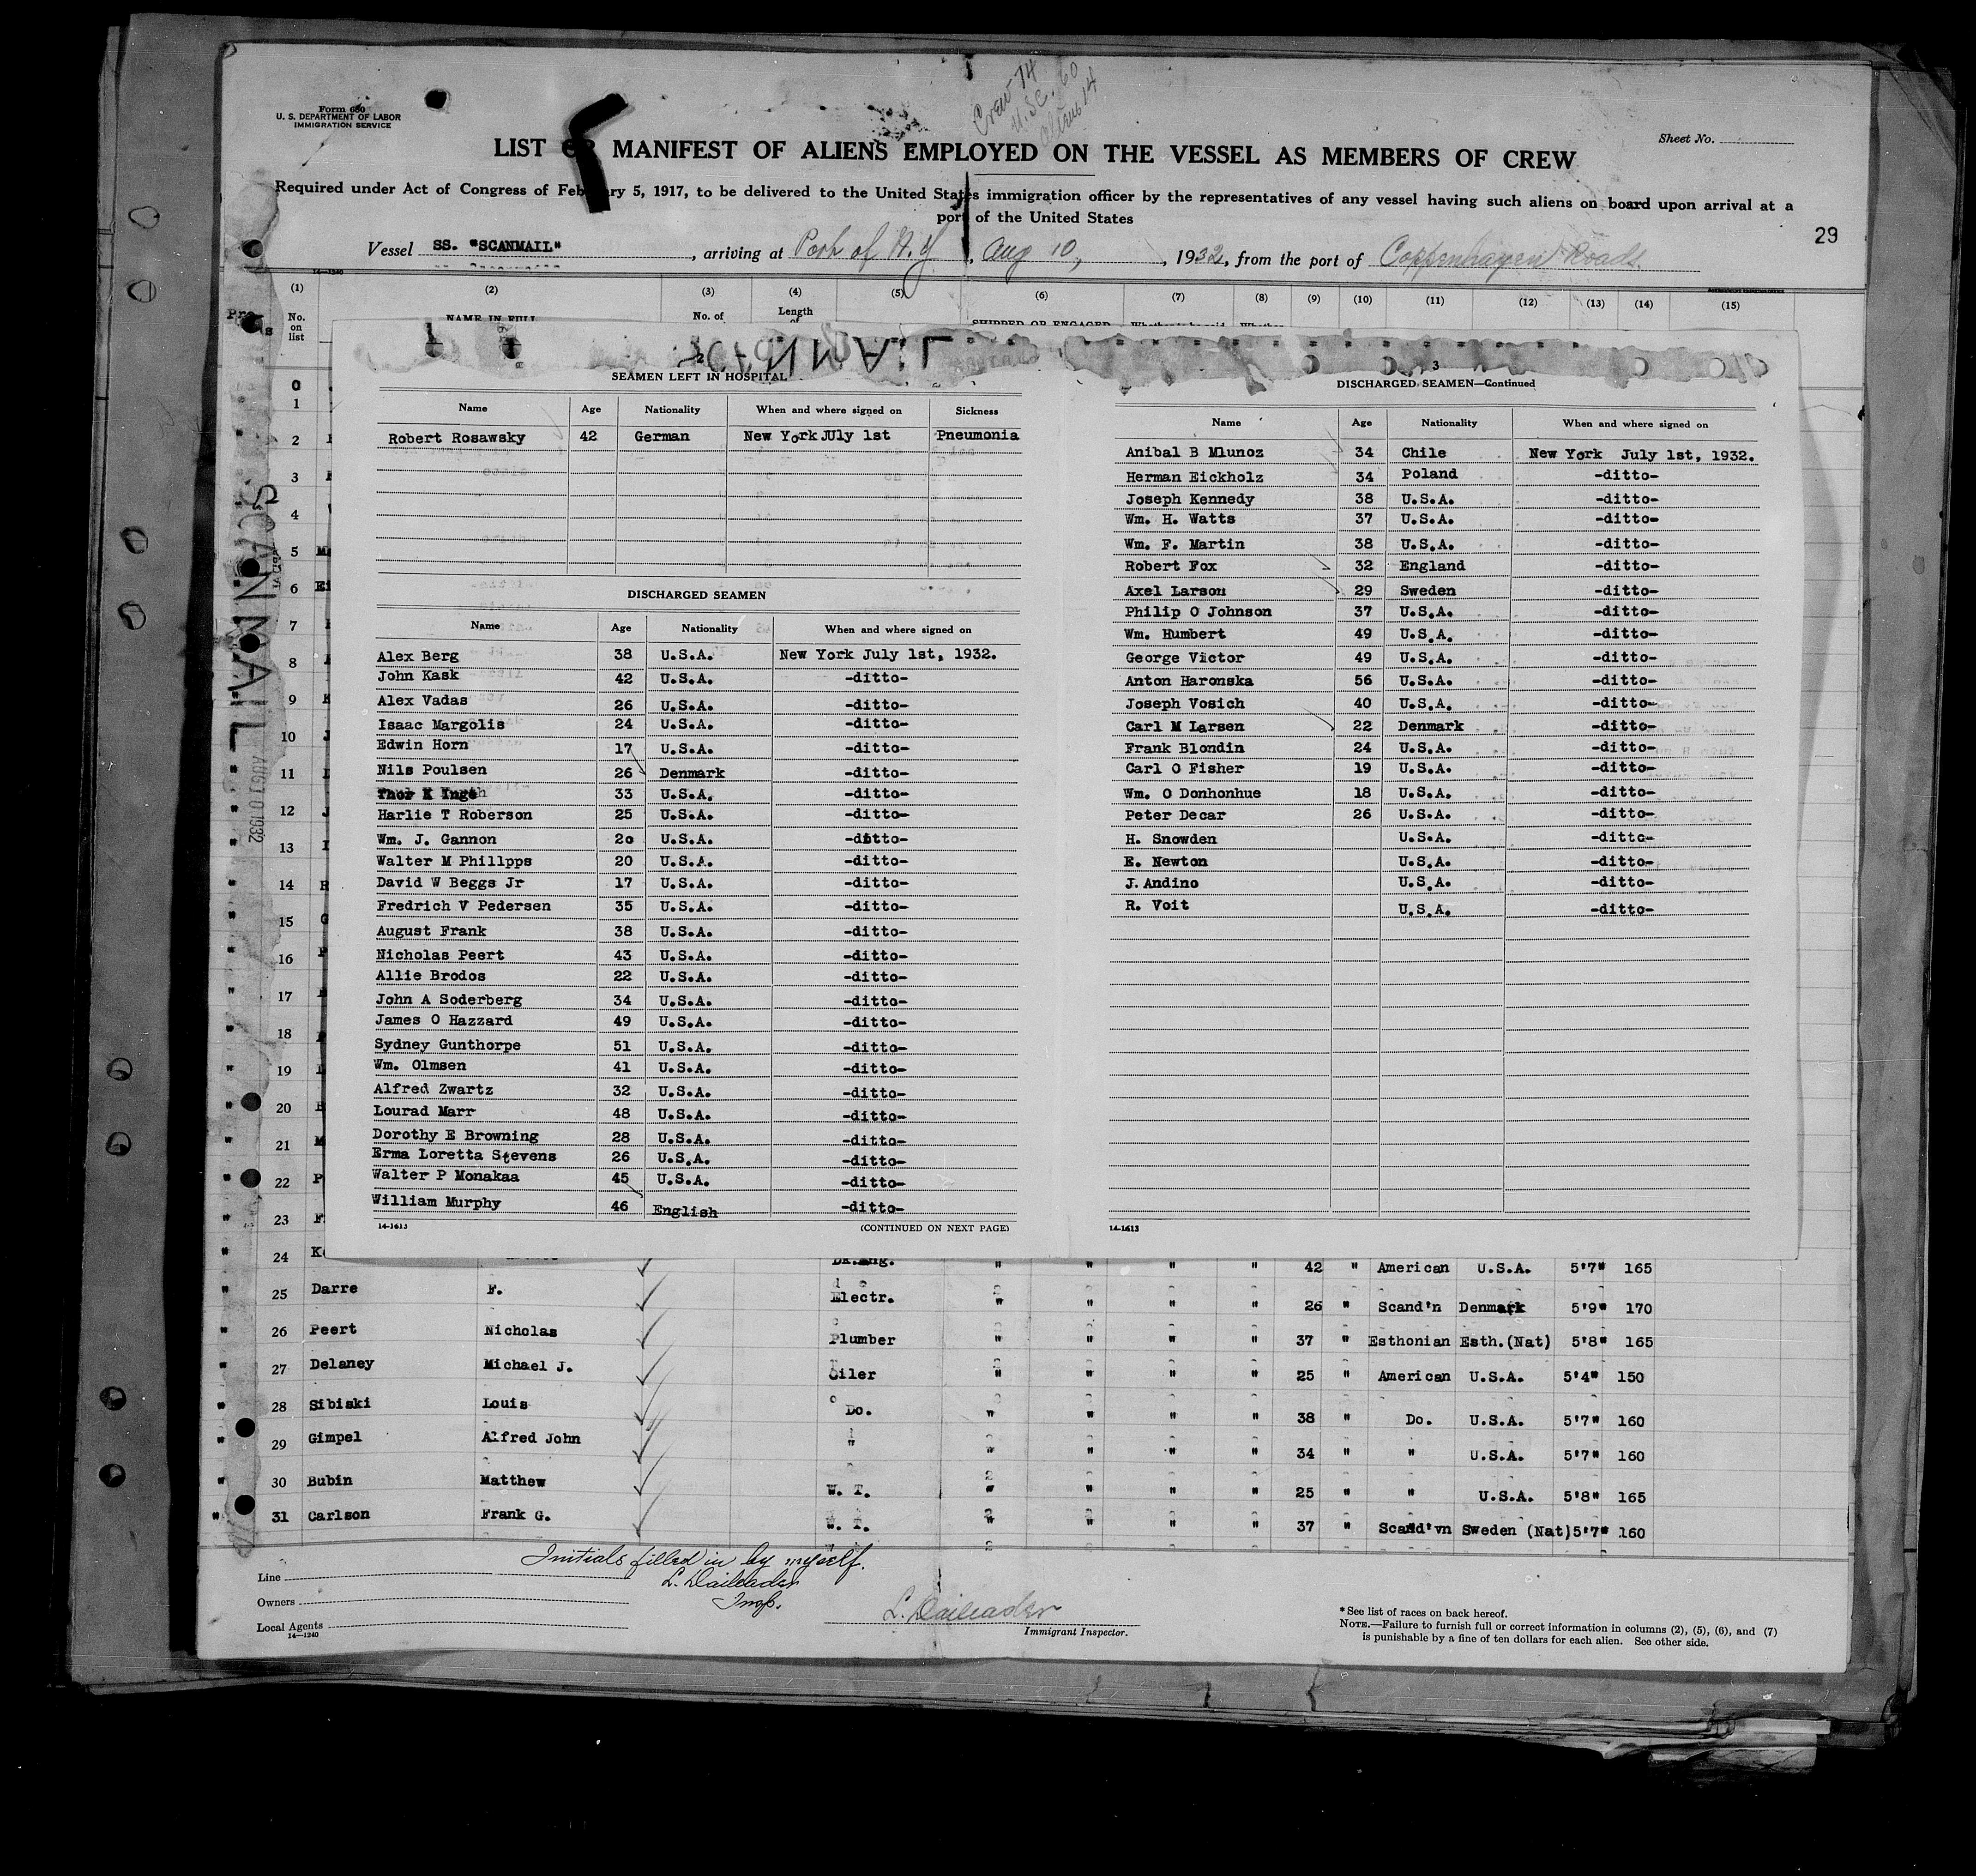 Form 680
U. S. DEPARTMENT OF LABOR
IMMIGRATION SERVICE
Crew 74
U.S.C. 60
Aliens 14
Sheet No.
LIST OR MANIFEST OF ALIENS EMPLOYED ON THE VESSEL AS MEMBERS OF CREW
Required under Act of Congress of February 5, 1917, to be delivered to the United States immigration officer by the representatives of any vessel having such aliens on board upon arrival at a
port of the United States
29
Vessel SS. "SCANMAIL", arriving at Port of N.Y., Aug 10, , 1932, from the port of Coppenhagen Roads.
14-1240
(1) (2) (3) (4) (5) (6) (7) (8) (9) (10) (11) (12) (13) (14) (15)
No. on list NAME IN FULL No. of Length of SHIPPED OR ENGAGED Whether
SCANMAIL
AUG 10 1932
SCANMAIL
2
SEAMEN LEFT IN HOSPITAL
Name Age Nationality When and where signed on Sickness
Robert Rosawsky 42 German New York JUly 1st Pneumonia
DISCHARGED SEAMEN
Name Age Nationality When and where signed on
Alex Berg 38 U.S.A. New York July 1st, 1932.
John Kask 42 U.S.A. -ditto-
Alex Vadas 26 U.S.A. -ditto-
Isaac Margolis 24 U.S.A. -ditto-
Edwin Horn 17 U.S.A. -ditto-
Nils Poulsen 26 Denmark -ditto-
Thor K Inge 33 U.S.A. -ditto-
Harlie T Roberson 25 U.S.A. -ditto-
Wm. J. Gannon 2o U.S.A. -ditto-
Walter M Phillpps 20 U.S.A. -ditto-
David W Beggs Jr 17 U.S.A. -ditto-
Fredrich V Pedersen 35 U.S.A. -ditto-
August Frank 38 U.S.A. -ditto-
Nicholas Peert 43 U.S.A. -ditto-
Allie Brodos 22 U.S.A. -ditto-
John A Soderberg 34 U.S.A. -ditto-
James O Hazzard 49 U.S.A. -ditto-
Sydney Gunthorpe 51 U.S.A. -ditto-
Wm. Olmsen 41 U.S.A. -ditto-
Alfred Zwartz 32 U.S.A. -ditto-
Lourad Marr 48 U.S.A. -ditto-
Dorothy E Browning 28 U.S.A. -ditto-
Erma Loretta Stevens 26 U.S.A. -ditto-
Walter P Monakaa 45 U.S.A. -ditto-
William Murphy 46 English -ditto-
14-1613 (CONTINUED ON NEXT PAGE)
3
DISCHARGED SEAMEN—Continued
Name Age Nationality When and where signed on
Anibal B Mlunoz 34 Chile New York July 1st, 1932.
Herman Eickholz 34 Poland -ditto-
Joseph Kennedy 38 U.S.A. -ditto-
Wm. H. Watts 37 U.S.A. -ditto-
Wm. F. Martin 38 U.S.A. -ditto-
Robert Fox 32 England -ditto-
Axel Larson 29 Sweden -ditto-
Philip O Johnson 37 U.S.A. -ditto-
Wm. Humbert 49 U.S.A. -ditto-
George Victor 49 U.S.A. -ditto-
Anton Haronska 56 U.S.A. -ditto-
Joseph Vosich 40 U.S.A. -ditto-
Carl M Larsen 22 Denmark -ditto-
Frank Blondin 24 U.S.A. -ditto-
Carl O Fisher 19 U.S.A. -ditto-
Wm. O Donhonhue 18 U.S.A. -ditto-
Peter Decar 26 U.S.A. -ditto-
H. Snowden U.S.A. -ditto-
E. Newton U.S.A. -ditto-
J. Andino U.S.A. -ditto-
R. Voit U.S.A. -ditto-
14-1613
0
1
2
3
4
5
6
7
8
9
10
11
12
13
14
15
16
17
18
19
20
21
22
23
24 Dk.Eng. " " " " 42 " American U.S.A. 5'7" 165
25 Darre F. Electr. " " " " 26 " Scand'n Denmark 5'9" 170
26 Peert Nicholas Plumber " " " " 37 " Esthonian Esth.(Nat) 5'8" 165
27 Delaney Michael J. Oiler " " " " 25 " American U.S.A. 5'4" 150
28 Sibiski Louis Do. " " " " 38 " Do. U.S.A. 5'7" 160
29 Gimpel Alfred John " " " " " 34 " " U.S.A. 5'7" 160
30 Bubin Matthew W. T. " " " " 25 " " U.S.A. 5'8" 165
31 Carlson Frank G. W. T. " " " " 37 " Scand'vn Sweden (Nat) 5'7" 160
Initials filled in by myself.
L. Daileader
Insp.
Line
Owners
Local Agents
14—1240
L. Daileader
Immigrant Inspector.
*See list of races on back hereof.
NOTE.—Failure to furnish full or correct information in columns (2), (5), (6), and (7)
is punishable by a fine of ten dollars for each alien. See other side.